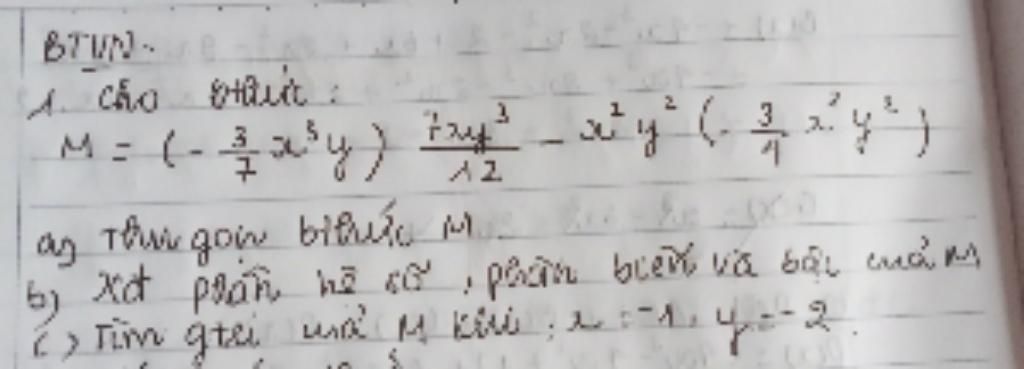 BTVN.
1. Cho bthức:
M = (- 3/7 x³y) 7xy³/12 - x²y² (- 3/4 x²y²)
a) Thu gọn bthức M
b) Xđ phần hệ số, phần biến và bậc của M
c) Tìm gtrị của M khi: x = -1, y = -2.